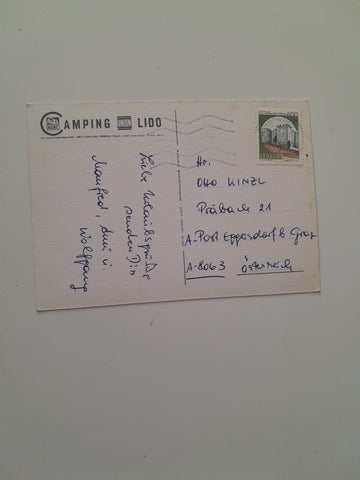 CAMPING LIDO
Liebe Urlaubsgrüße
senden Dir
Manfred, Anni u
Wolfgang
Hr.
OTTO KINZL
Präbach 21
A-Post Eggersdorf b Graz
A-8063 Österreich